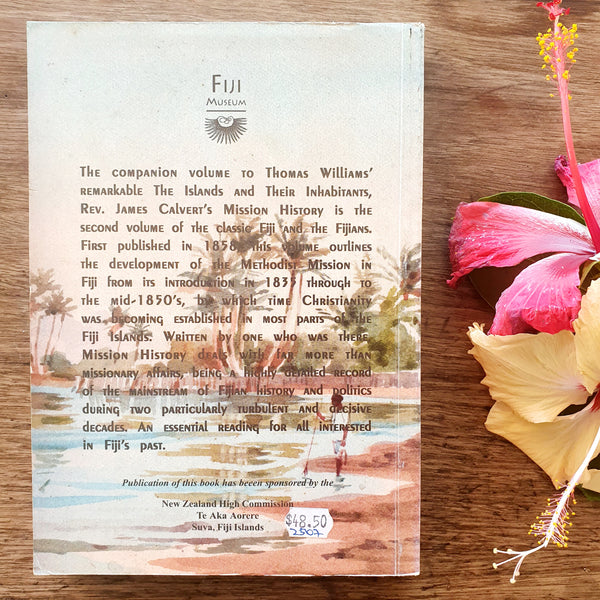 FIJI
MUSEUM
THE COMPANION VOLUME TO THOMAS WILLIAMS'
REMARKABLE THE ISLANDS AND THEIR INHABITANTS,
REV. JAMES CALVERT'S MISSION HISTORY IS THE
SECOND VOLUME OF THE CLASSIC FIJI AND THE FIJIANS.
FIRST PUBLISHED IN 1858, THIS VOLUME OUTLINES
THE DEVELOPMENT OF THE METHODIST MISSION IN
FIJI FROM ITS INTRODUCTION IN 1835 THROUGH TO
THE MID-1850'S, BY WHICH TIME CHRISTIANITY
WAS BECOMING ESTABLISHED IN MOST PARTS OF THE
FIJI ISLANDS. WRITTEN BY ONE WHO WAS THERE,
MISSION HISTORY DEALS WITH FAR MORE THAN
MISSIONARY AFFAIRS, BEING A HIGHLY DETAILED RECORD
OF THE MAINSTREAM OF FIJIAN HISTORY AND POLITICS
DURING TWO PARTICULARLY TURBULENT AND DECISIVE
DECADES. AN ESSENTIAL READING FOR ALL INTERESTED
IN FIJI'S PAST.
Publication of this book has beeen sponsored by the
New Zealand High Commission
Te Aka Aorere
Suva, Fiji Islands
$48.50
2507